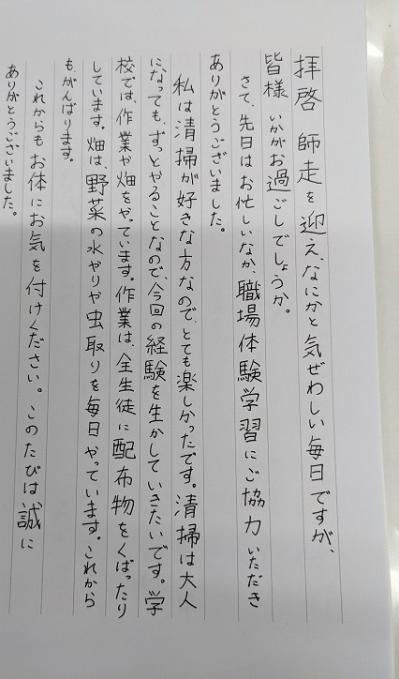 拝啓 師走を迎え、なにかと気ぜわしい毎日ですが、
皆様 いかがお過ごしでしょうか。
さて、先日はお忙しいなか、職場体験学習にご協力いただき
ありがとうございました。
私は清掃が好きな方なので、とても楽しかったです。清掃は大人
になっても、ずっとやることなので、今回の経験を生かしていきたいです。学
校では、作業や畑をやっています。作業は、全生徒に配布物をくばったり
しています。畑は、野菜の水やりや虫取りを毎日やっています。これから
も、がんばります。
これからもお体にお気を付けください。このたびは誠に
ありがとうございました。